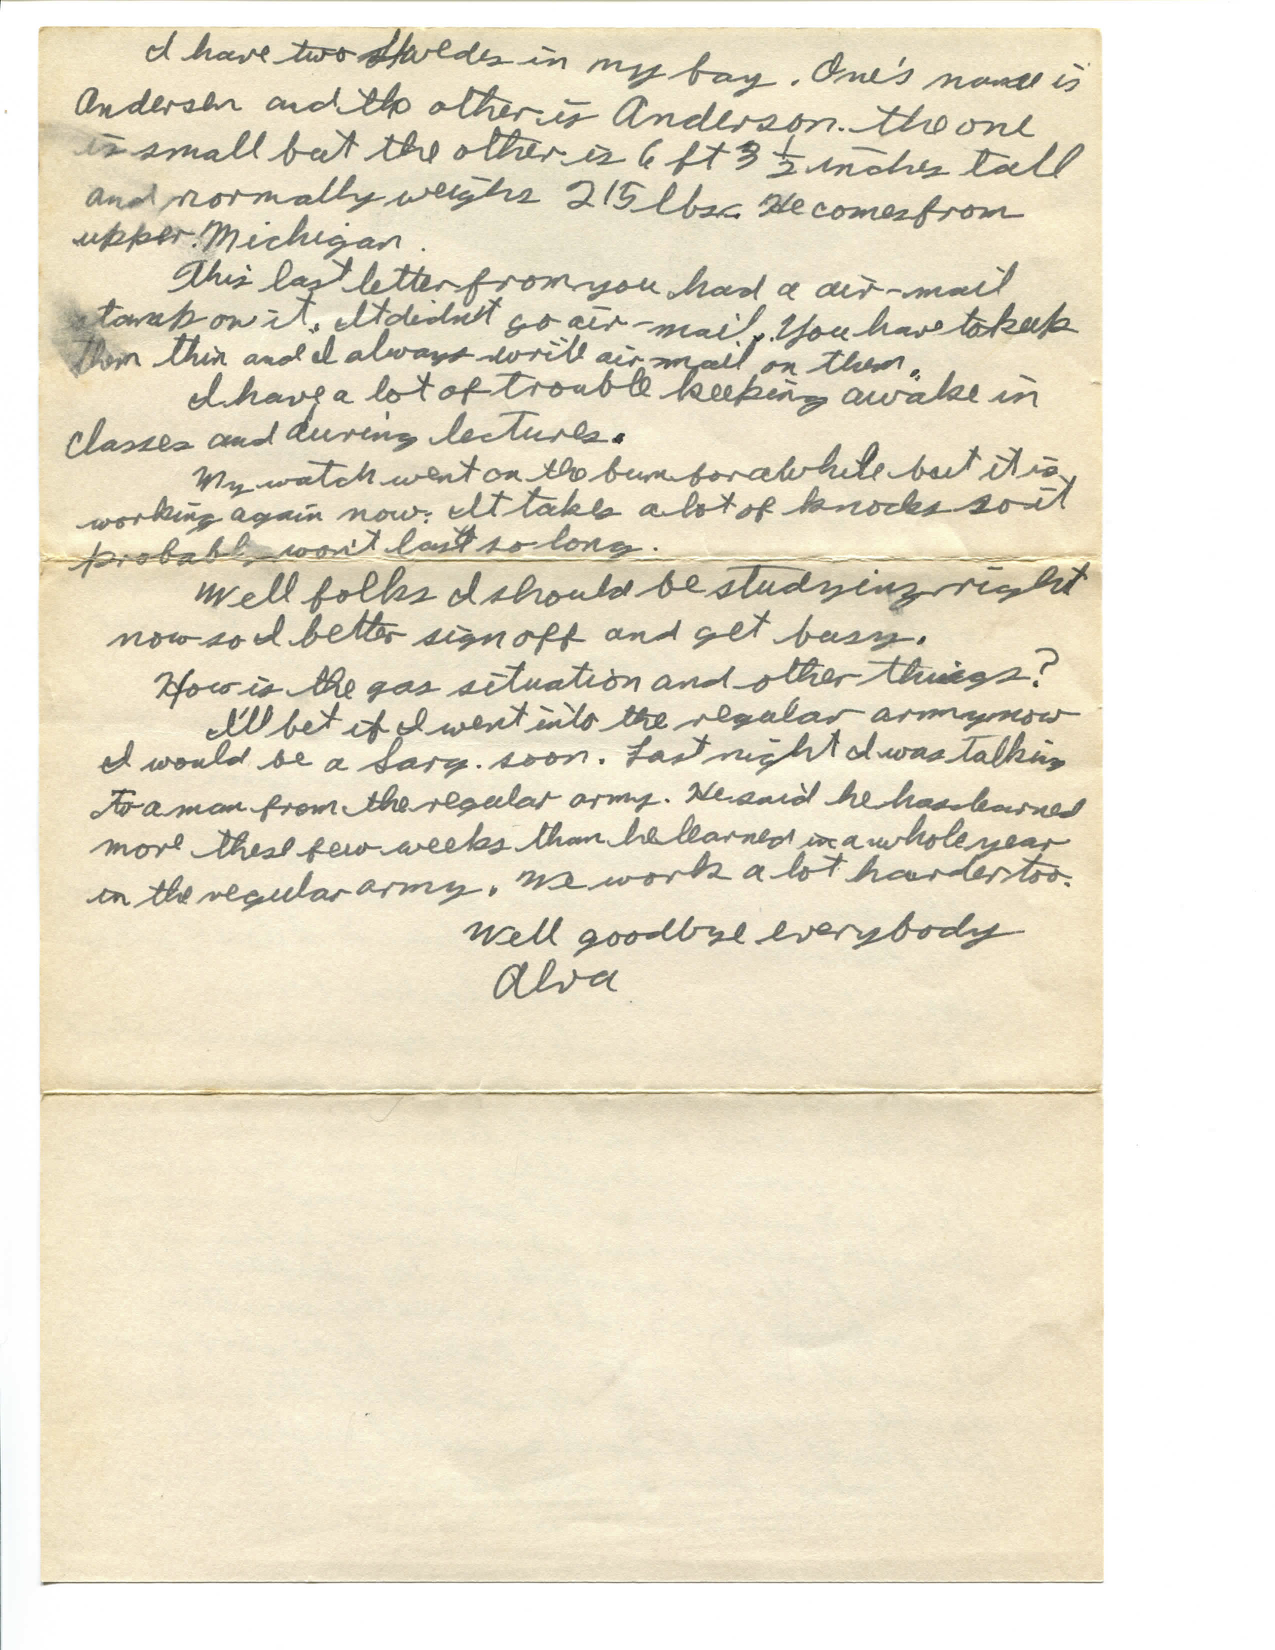 I have two Swedes in my bay. One's name is
Andersen and the other is Anderson. the one
is small but the other is 6 ft 3 1/2 inches tall
and normally weighs 215 lbs. He comes from
upper Michigan.
This last letter from you had a air-mail
stamp on it. It didn't go air-mail. You have to keep
them thin and I always write air mail on them.
I have a lot of trouble keeping awake in
classes and during lectures.
My watch went on the bum for awhile but it is
working again now. It takes a lot of knocks so it
probably won't last so long.
Well folks I should be studying right
now so I better sign off and get busy.
How is the gas situation and other things?
I'll bet if I went into the regular army now
I would be a Sarg. soon. Last night I was talking
to a man from the regular army. He said he has learned
more these few weeks than he learned in a whole year
in the regular army. We work a lot harder too.
Well goodbye everybody
Alva